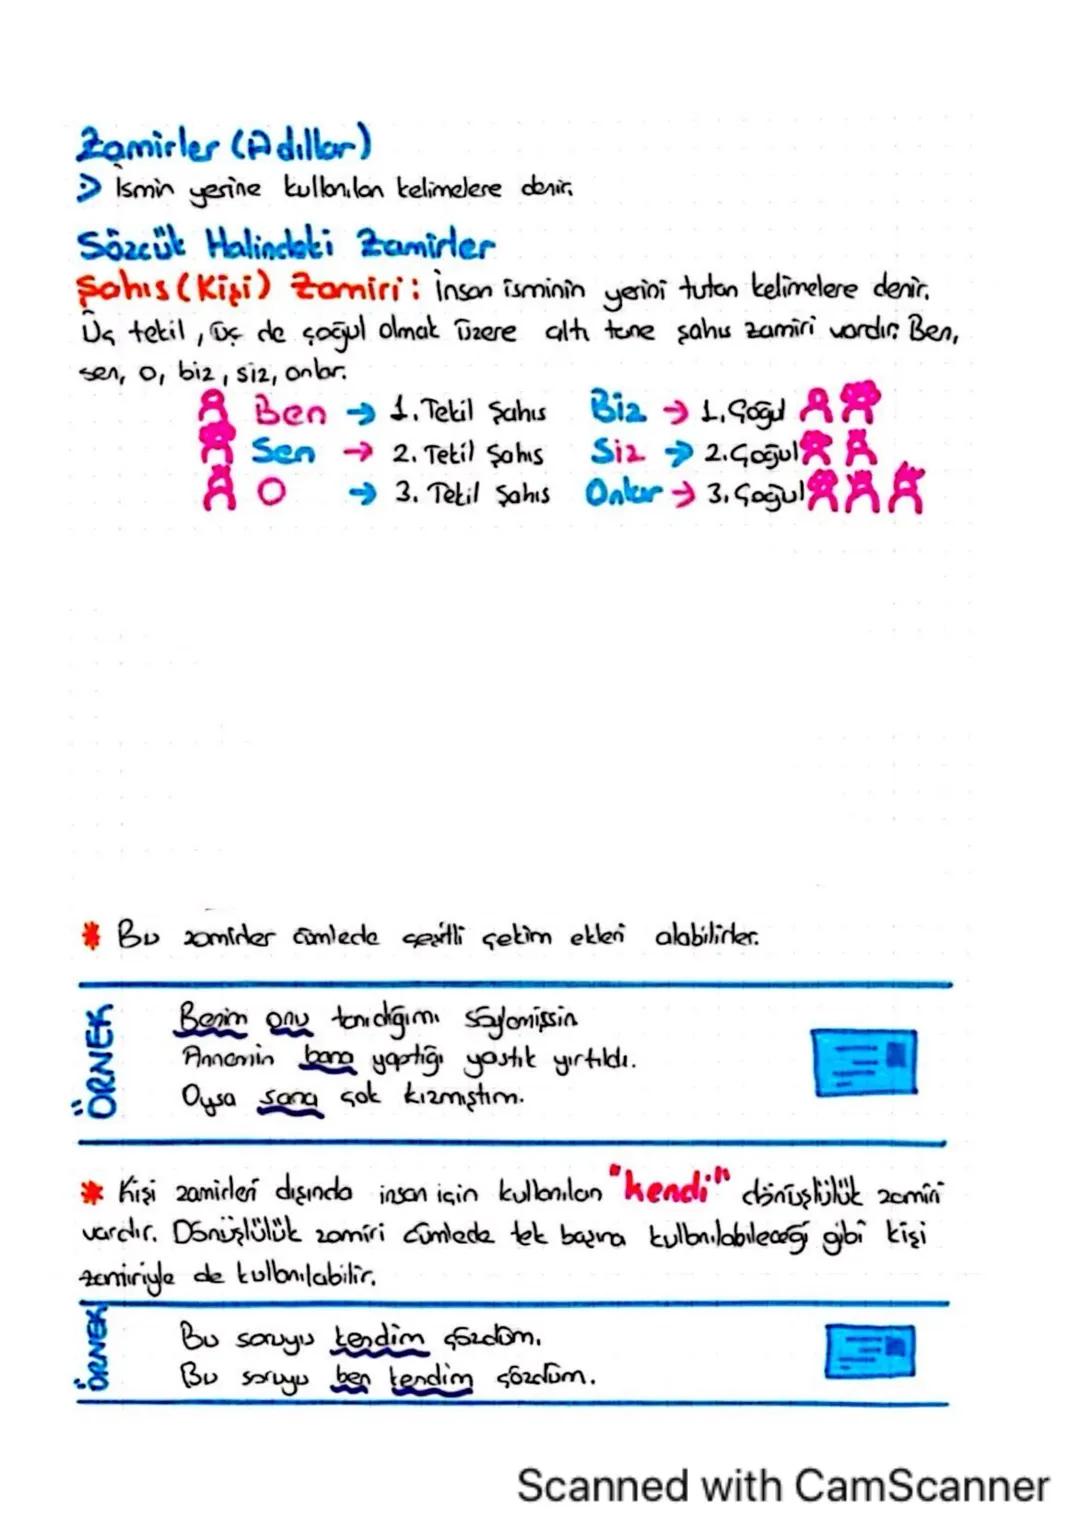 Zamirler (Adıllar)
İsmin yerine kullanılan kelimelere denir.
Sözcük Halindeki Zamirler
Şahıs (Kişi) Zamiri: İnsan isminin yerini tutan kelimelere denir.
Üç tekil, üç de çoğul olmak üzere altı tane şahıs zamiri vardır. Ben,
sen, o, biz, siz, onlar.
Ben → 1. Tekil Şahıs Biz → 1. Çoğul
Sen → 2. Tekil Şahıs Siz → 2. Çoğul
O → 3. Tekil Şahıs Onlar → 3. Çoğul
* Bu zamirler cümlede çeşitli çekim ekleri alabilirler.
ÖRNEK
Benim onu tanıdığımı söylemişsin
Annemin bana yaptığı yastık yırtıldı.
Oysa sana çok kızmıştım.
* Kişi zamirleri dışında insan için kullanılan "kendi" dönüşlülük zamiri
vardır. Dönüşlülük zamiri cümlede tek başına kullanılabileceği gibi kişi
zamiriyle de kullanılabilir.
ÖRNEK
Bu soruyu kendim çözdüm.
Bu soruyu ben kendim çözdüm.
Scanned with CamScanner